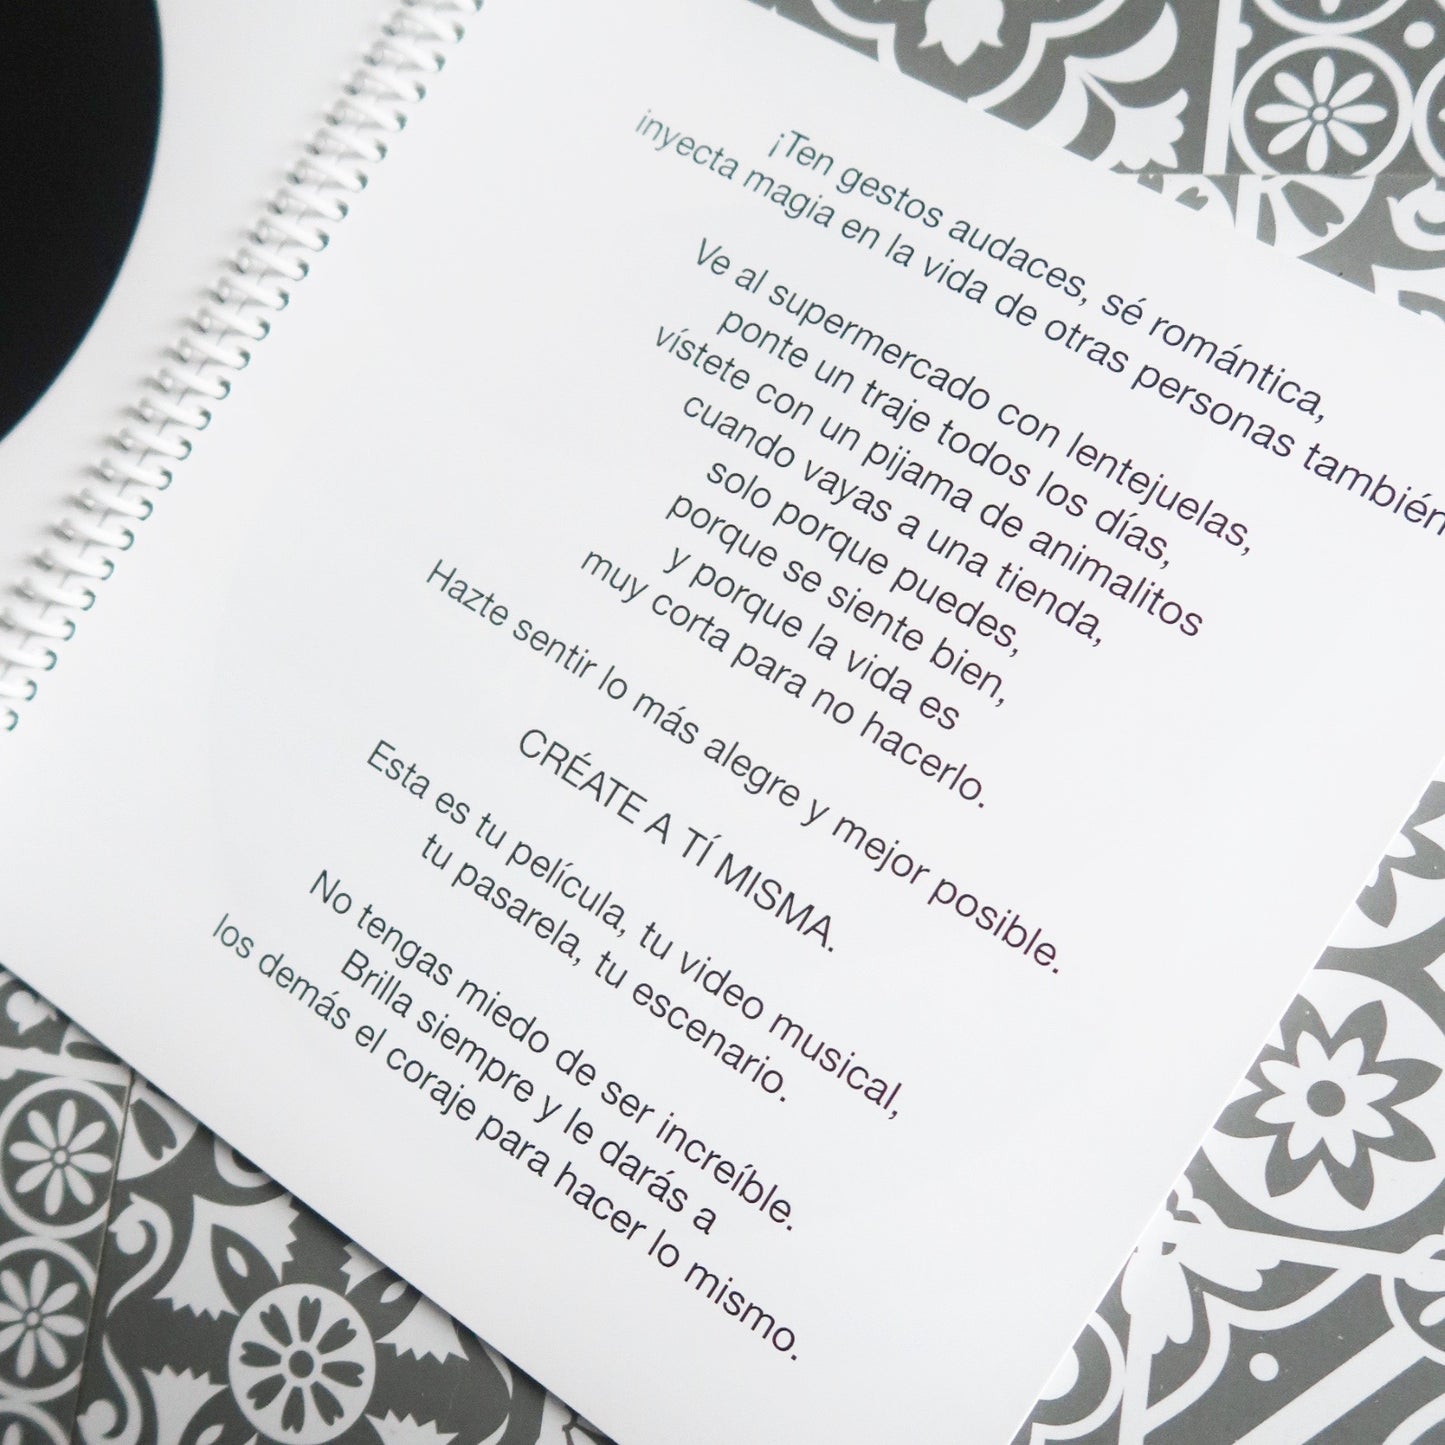 ¡Ten gestos audaces, sé romántica,
inyecta magia en la vida de otras personas también
Ve al supermercado con lentejuelas,
ponte un traje todos los días,
vístete con un pijama de animalitos
cuando vayas a una tienda,
solo porque puedes,
porque se siente bien,
y porque la vida es
muy corta para no hacerlo.
Hazte sentir lo más alegre y mejor posible.
CRÉATE A TÍ MISMA.
Esta es tu película, tu video musical,
tu pasarela, tu escenario.
No tengas miedo de ser increíble.
Brilla siempre y le darás a
los demás el coraje para hacer lo mismo.